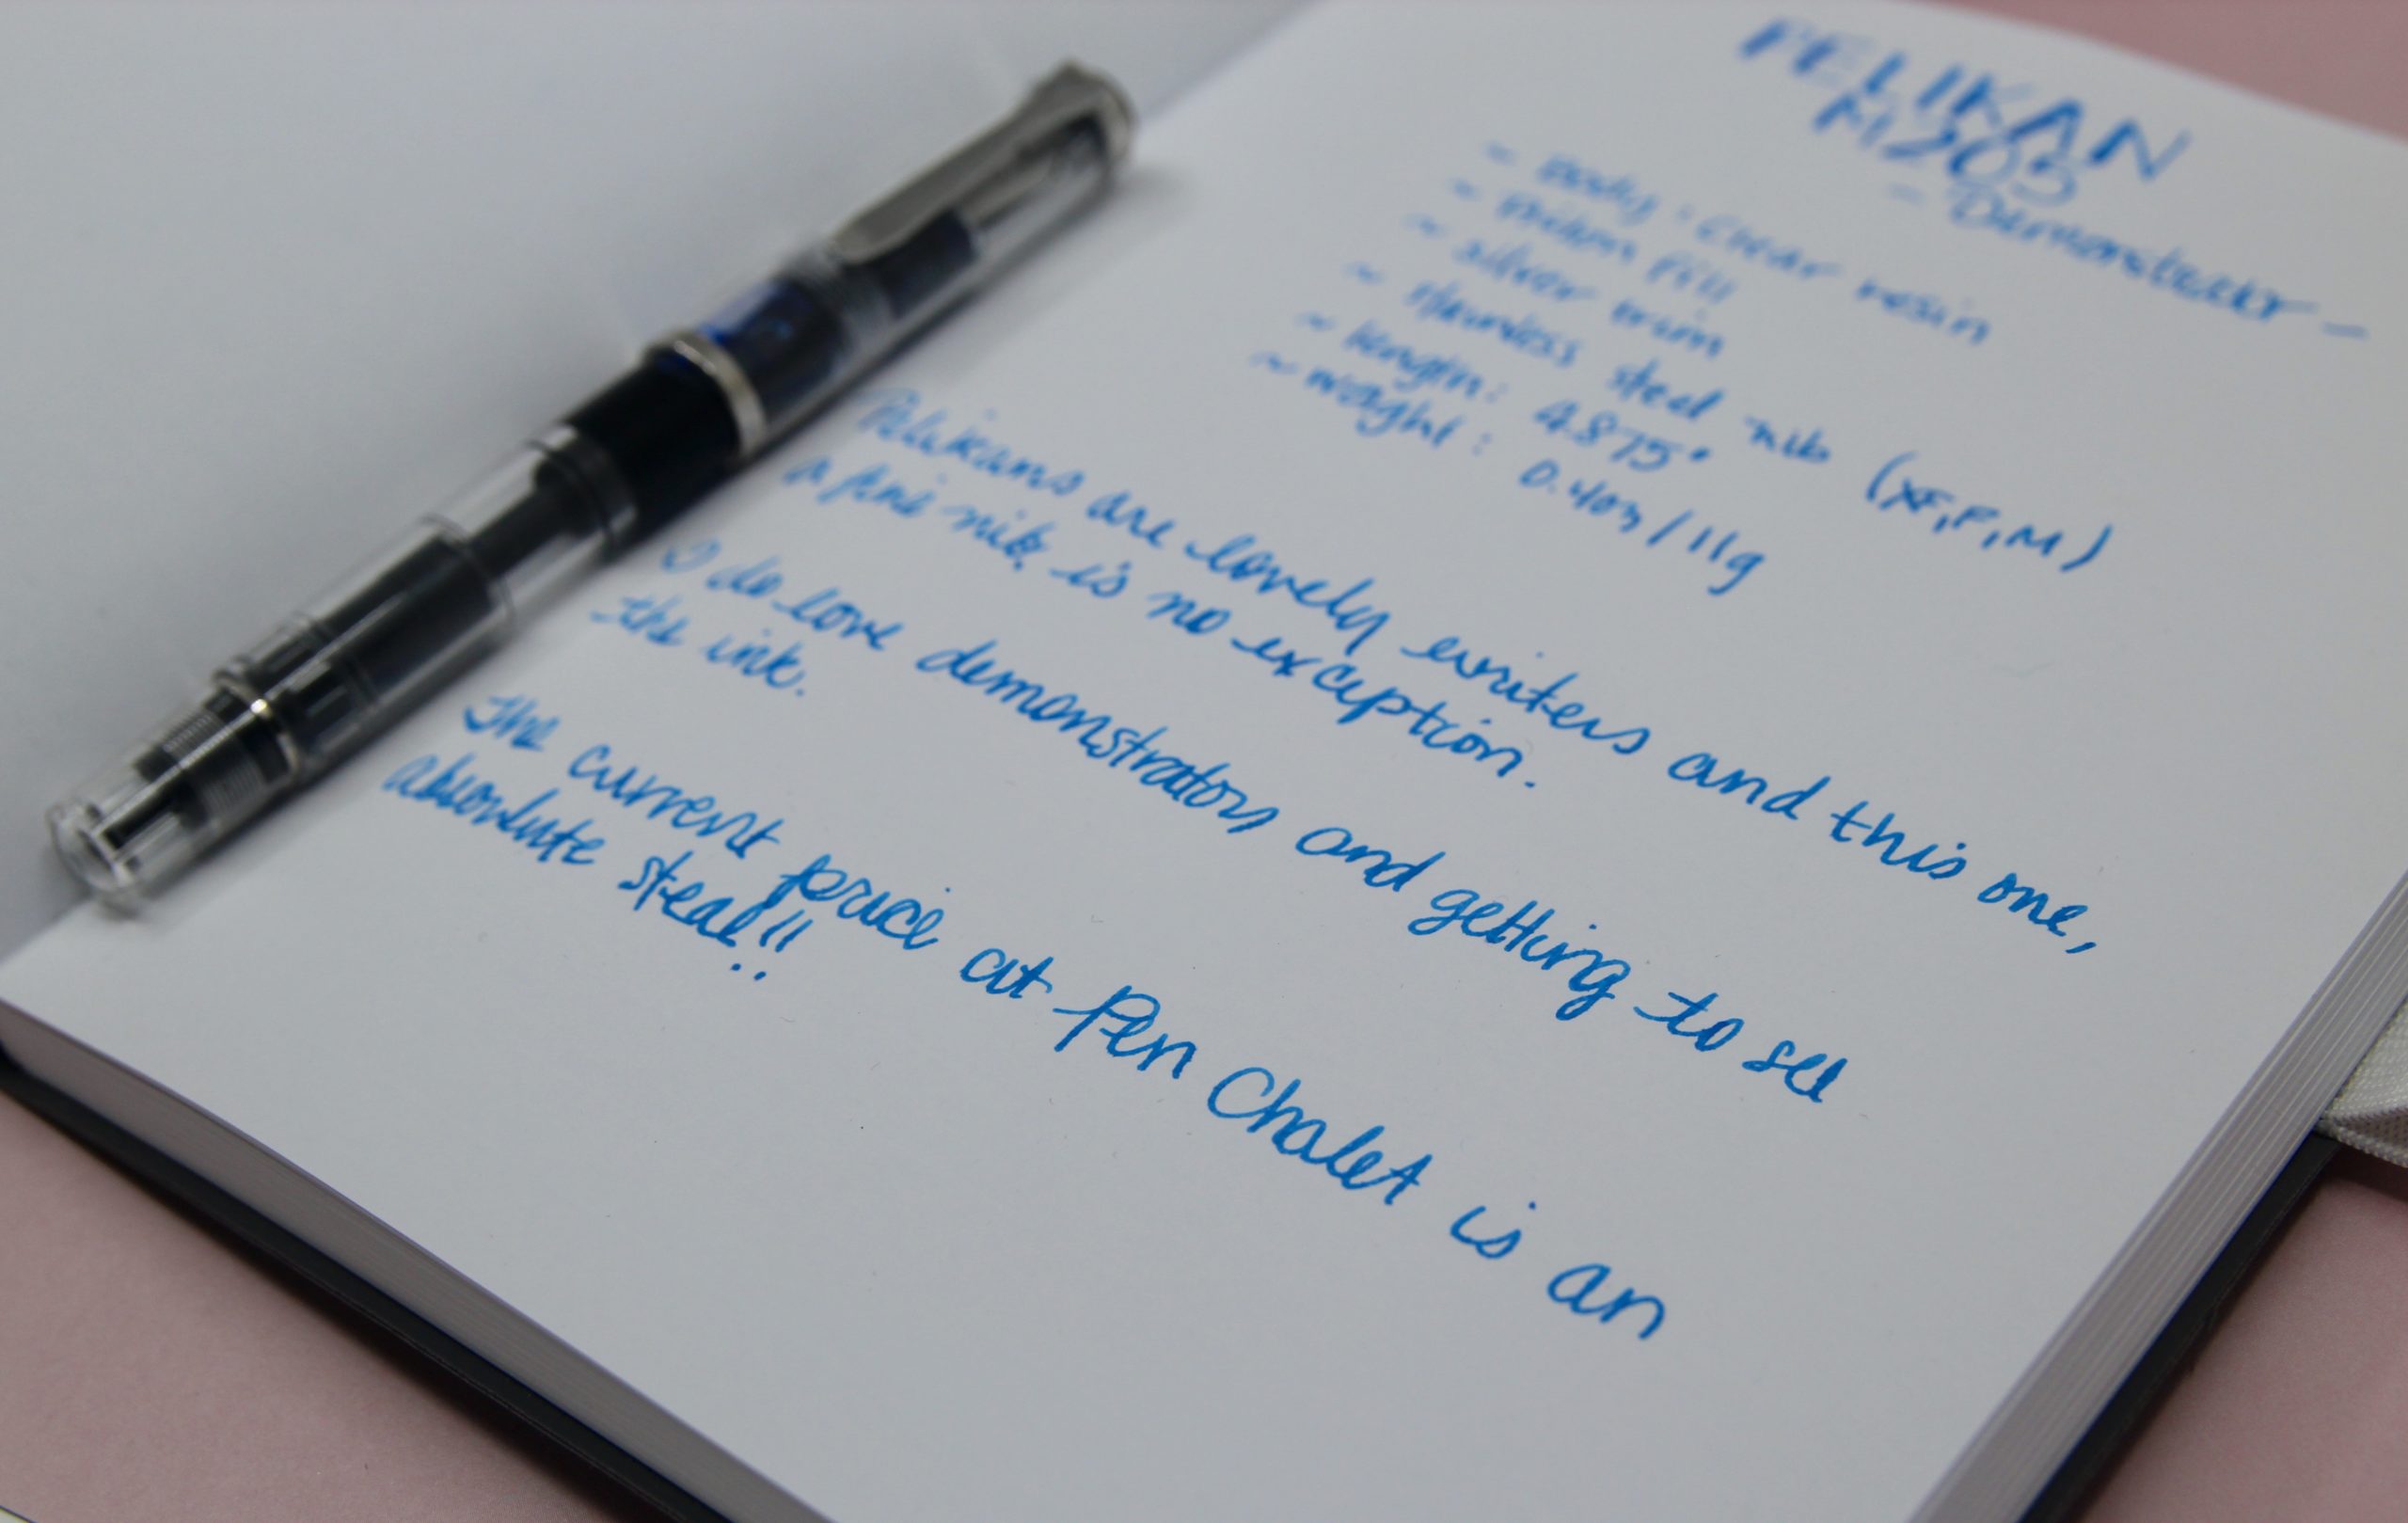 PELIKAN
M205
- Demonstrator -
~ Body: Clear resin
~ Piston fill
~ silver trim
~ stainless steel nib (XF, F, M)
~ length: 4.875"
~ weight: 0.40oz / 11g
Pelikans are lovely writers and this one,
a fine nib, is no exception.
I do love demonstrators and getting to see
the ink.
The current price at Pen Chalet is an
absolute steal!!